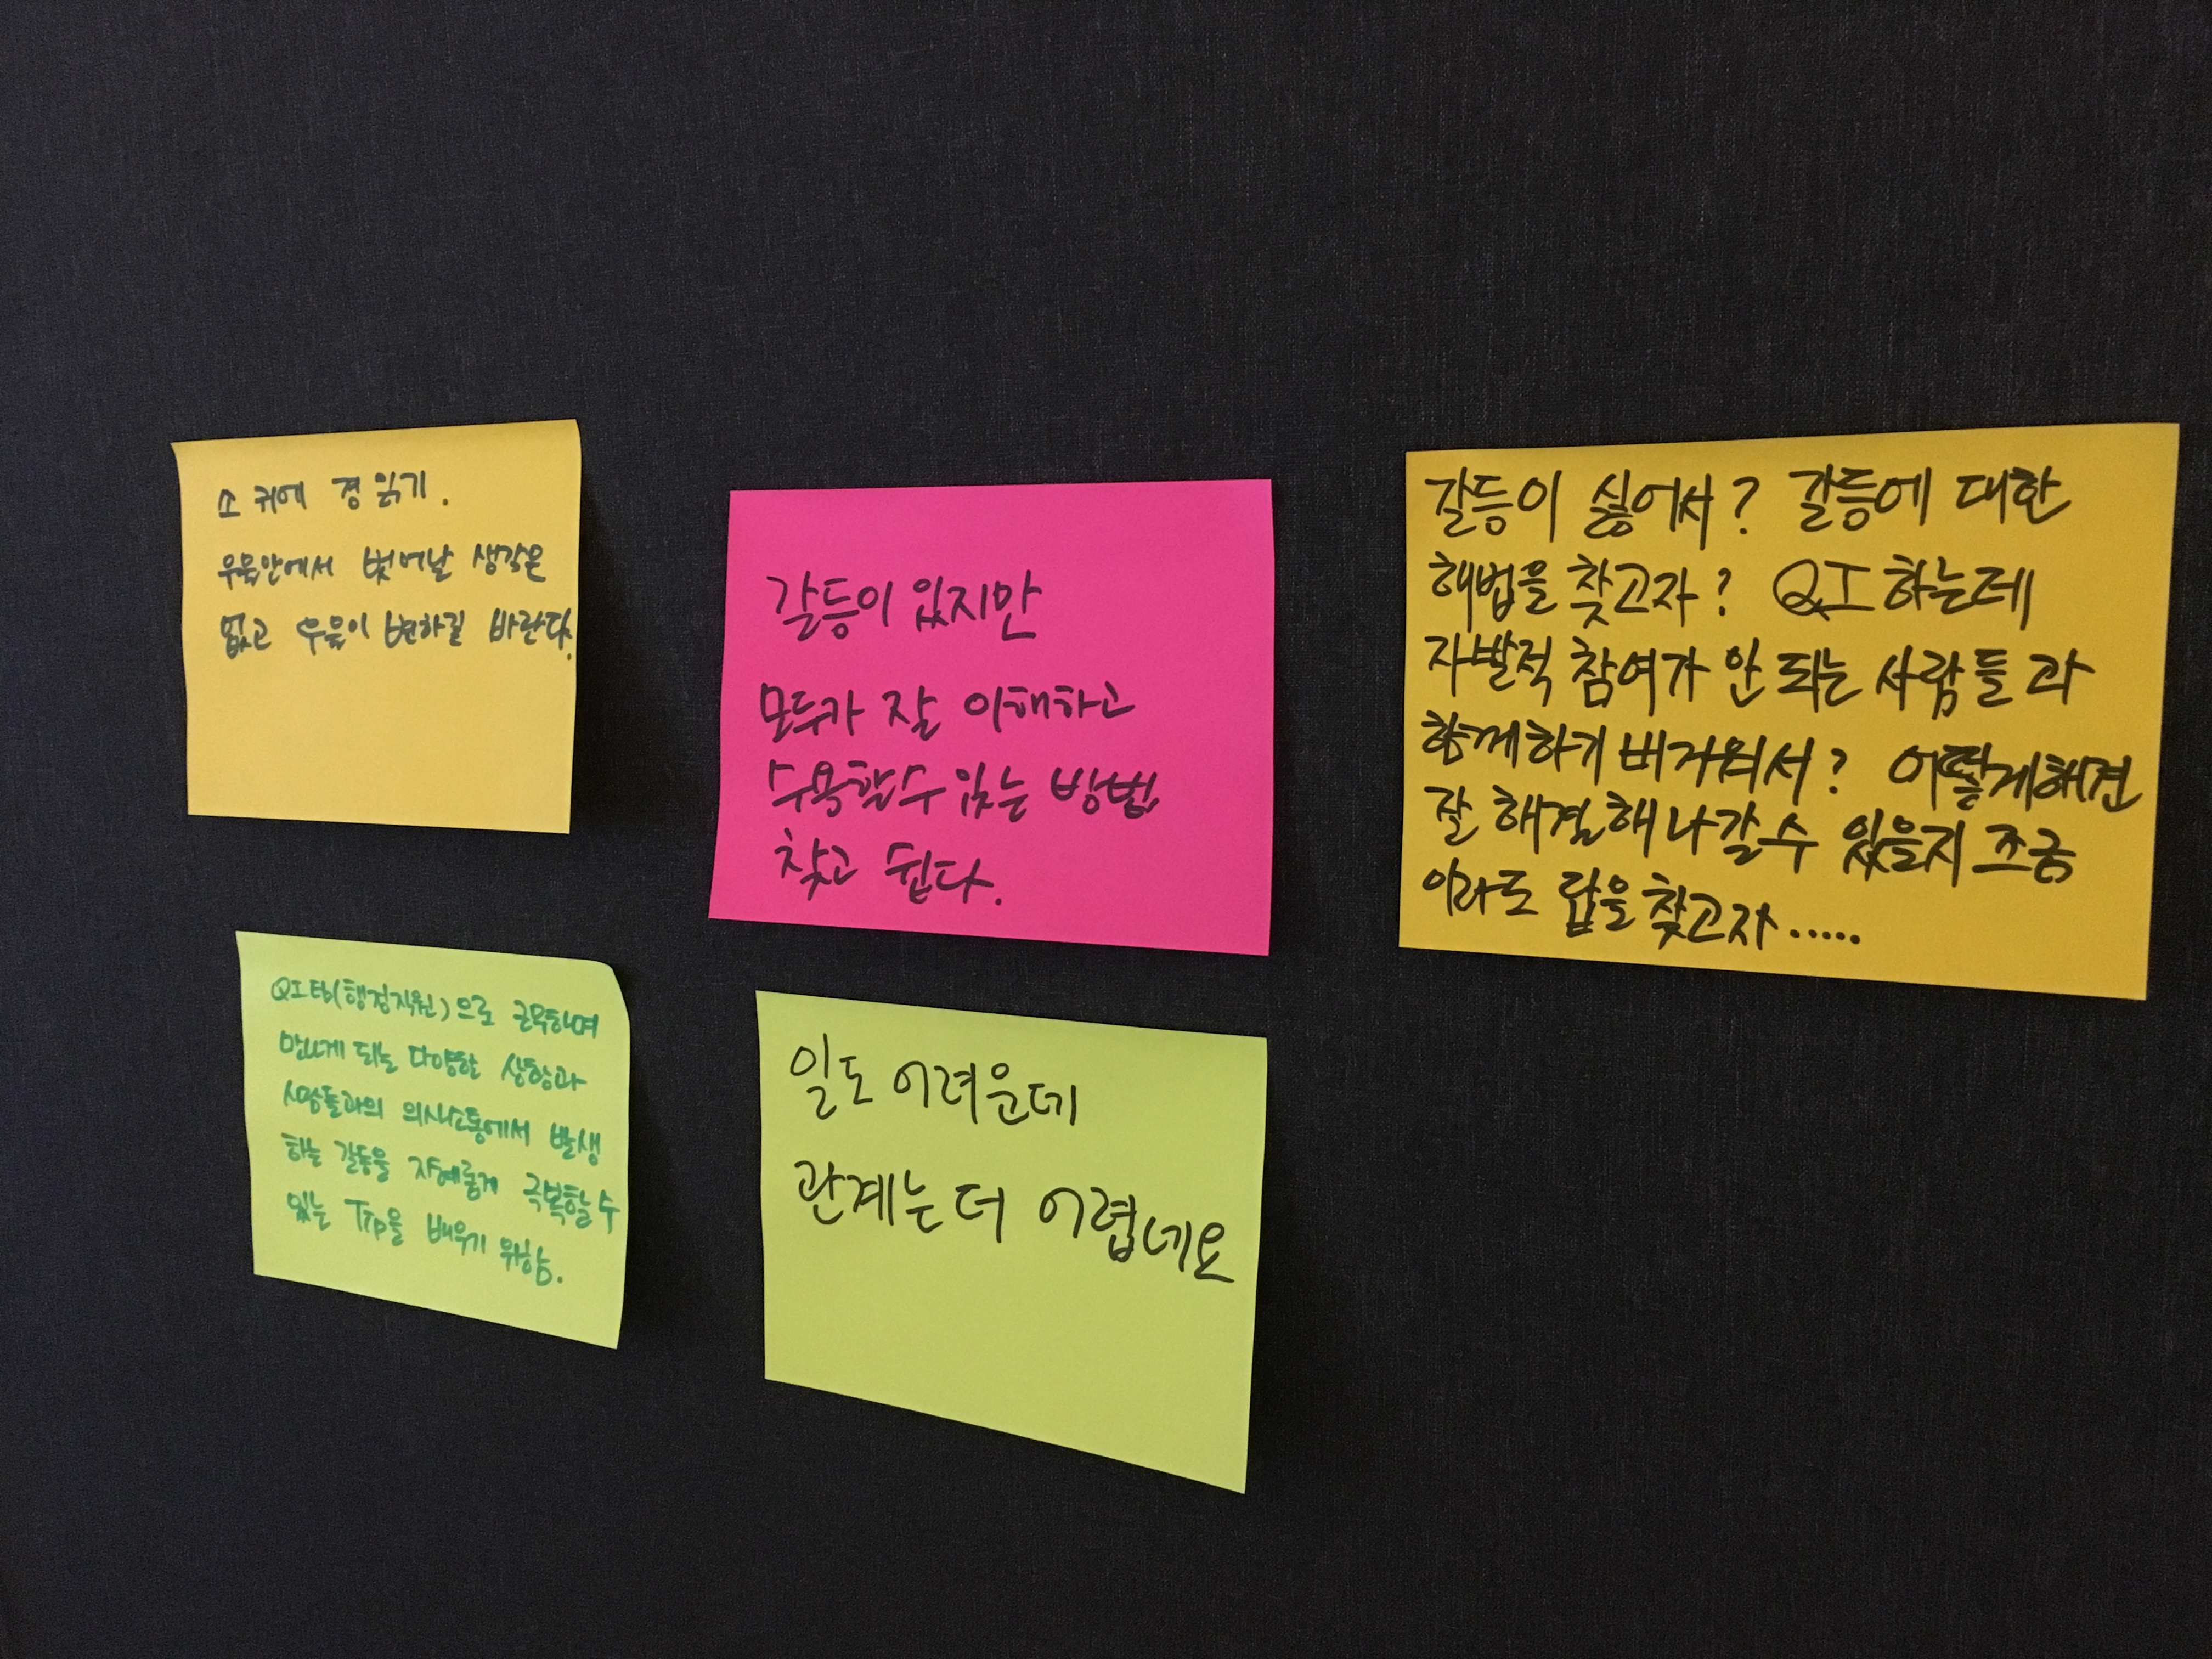 소 귀에 경 읽기.
우물안에서 벗어날 생각은
없고 우물이 변하길 바란다.
갈등이 있지만
모두가 잘 이해하고
수용할수 있는 방법
찾고 싶다.
갈등이 싫어서? 갈등에 대한
해법을 찾고자? QI 하는데
자발적 참여가 안 되는 사람들 과
함께하기 버거워서? 어떻게해건
잘 해결해 나갈 수 있을지 조금
이라도 답을 찾고자.....
QI팀(행정직원)으로 근무하며
만나게 되는 다양한 상황과
사람들과의 의사소통에서 발생
하는 갈등을 지혜롭게 극복할 수
있는 Tip을 배우기 위함.
일도 어려운데
관계는 더 어렵네요